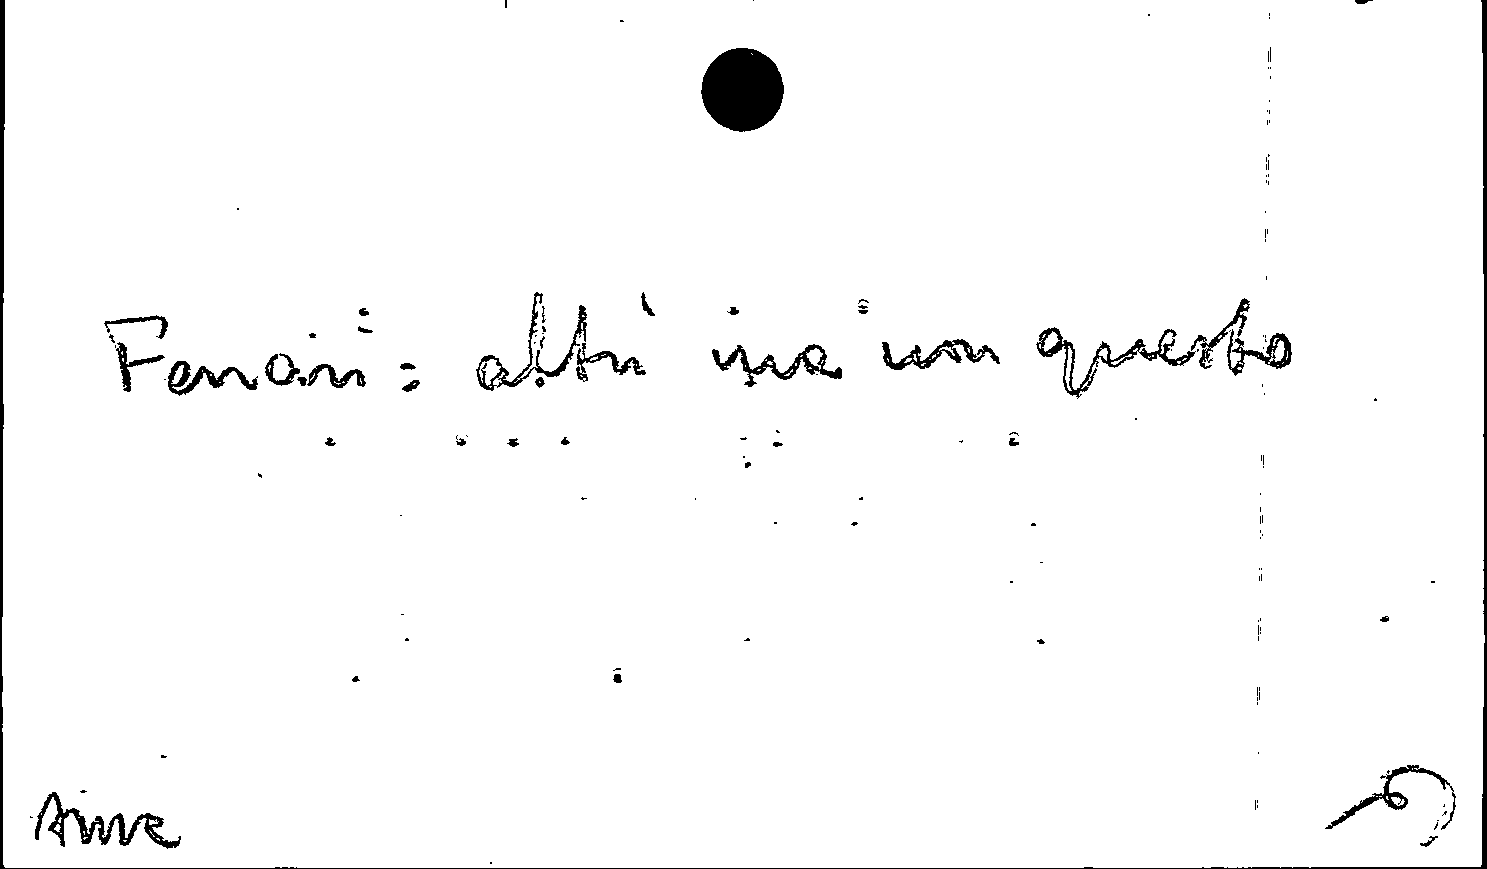 Ferrari: altri ma non questo